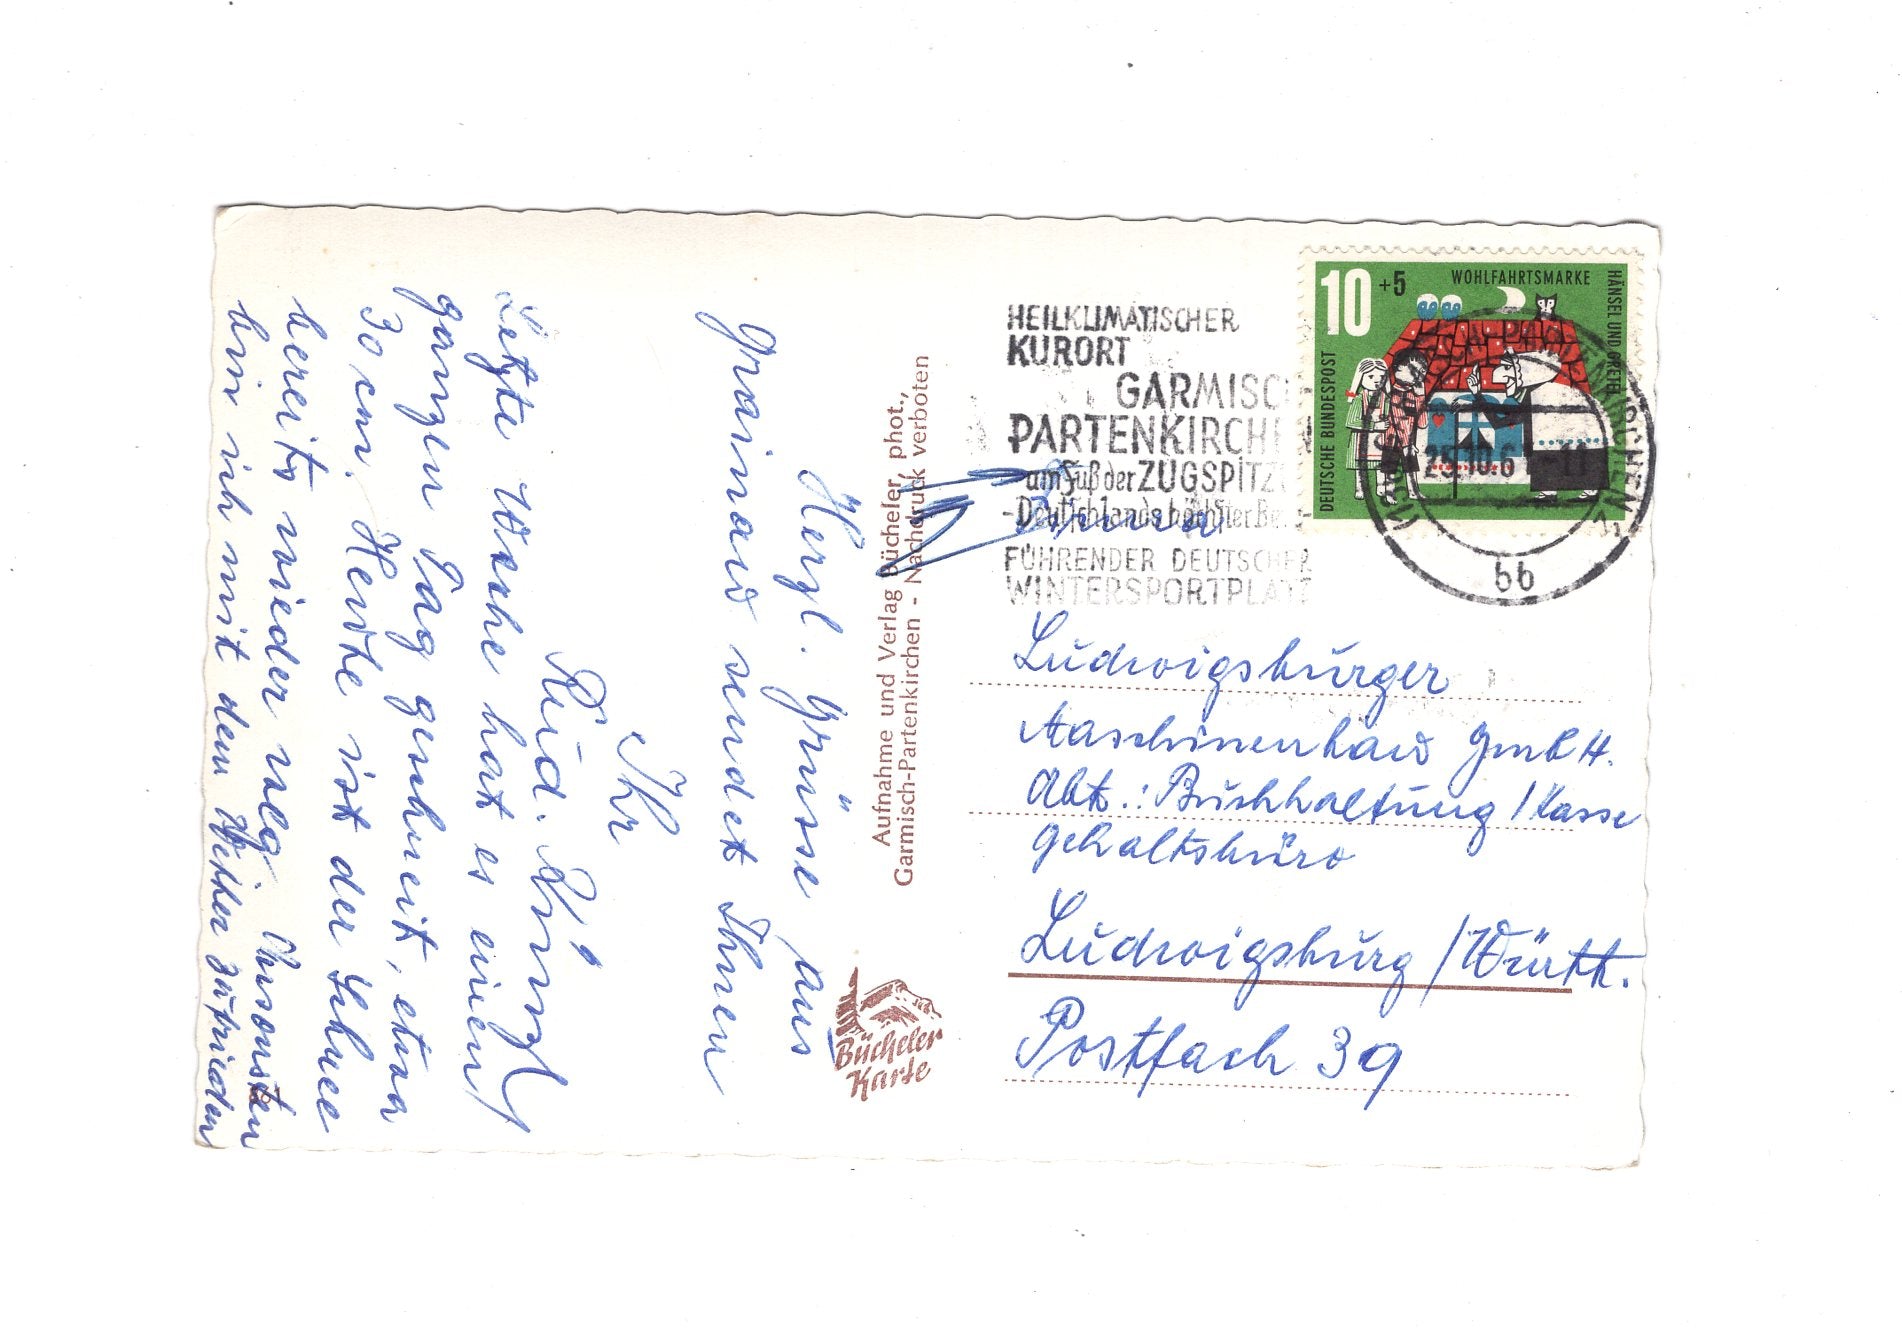 Herzl. Grüsse aus
Grainau sendet Ihnen
Ihr
Rud.
Letzte Woche hat es einen
ganzen Tag geschneit, etwa
30 cm. Heute ist der Schnee
bereits wieder weg. Ansonsten
bin ich mit dem Wetter zufrieden
Aufnahme und Verlag Bücheler, phot.,
Garmisch-Partenkirchen - Nachdruck verboten
Bücheler
Karte
HEILKLIMATISCHER
KURORT
GARMISCH-
PARTENKIRCHEN
am Fuß der ZUGSPITZE
-Deutschlands höchster Berg-
FÜHRENDER DEUTSCHER
WINTERSPORTPLATZ
10 +5
WOHLFAHRTSMARKE
HÄNSEL UND GRETEL
DEUTSCHE BUNDESPOST
GARMISCH-PARTENKIRCHEN
25.10.61-11
bb
Ludwigsburger
Maschinenbau GmbH.
Abt.: Buchhaltung / Kasse
Gehaltsbüro
Ludwigsburg / Württ.
Postfach 39